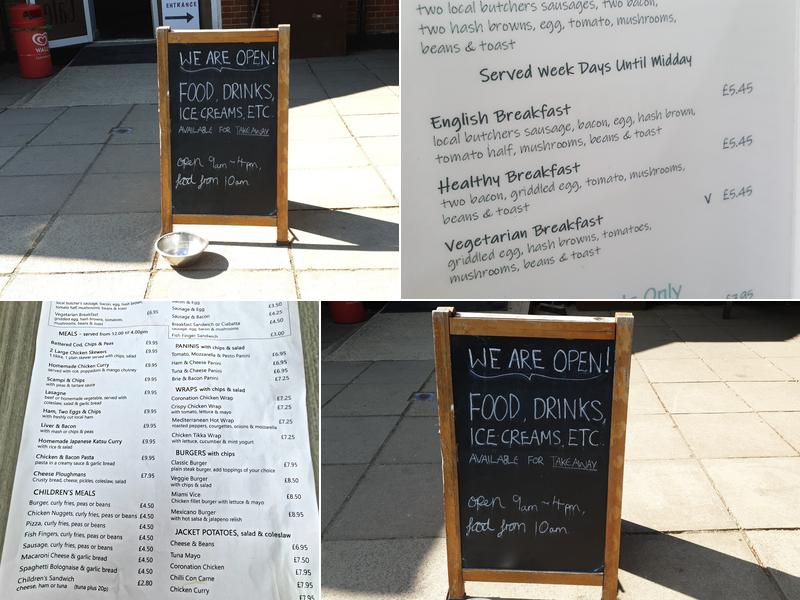 ENTRANCE
WE ARE OPEN!
FOOD, DRINKS,
ICE CREAMS, ETC.
AVAILABLE FOR TAKEAWAY
open 9am - 4pm,
food from 10am.
two local butchers sausages, two bacon,
two hash browns, egg, tomato, mushrooms,
beans & toast
Served Week Days Until Midday
English Breakfast £5.45
local butchers sausage, bacon, egg, hash brown,
tomato half, mushrooms, beans & toast
Healthy Breakfast £5.45
two bacon, griddled egg, tomato, mushrooms,
beans & toast
Vegetarian Breakfast V £5.45
griddled egg, hash browns, tomatoes,
mushrooms, beans & toast
Only
local butcher's sausage, bacon, egg, hash brown,
tomato half, mushrooms, beans & toast
Vegetarian Breakfast £6.95
griddled egg, hash browns, tomatoes,
mushrooms, beans & toast
MEALS – served from 12.00 til 4.00pm
Battered Cod, Chips & Peas £9.95
2 Large Chicken Skewers £9.95
1 tikka, 1 plain skewer served with chips, salad
Homemade Chicken Curry £9.95
served with rice, poppadom & mango chutney
Scampi & Chips £9.95
with peas & tartare sauce
Lasagne £9.95
beef or homemade vegetable, served with
coleslaw, salad & garlic bread
Ham, Two Eggs & Chips £9.95
with freshly cut local ham
Liver & Bacon £9.95
with mash or chips & peas
Homemade Japanese Katsu Curry £9.95
with rice & salad
Chicken & Bacon Pasta £9.95
pasta in a creamy sauce & garlic bread
Cheese Ploughmans £7.95
Crusty bread, cheese, pickles, coleslaw, salad
CHILDREN'S MEALS
Burger, curly fries, peas or beans £4.50
Chicken Nuggets, curly fries, peas or beans £4.50
Pizza, curly fries, peas or beans £4.50
Fish Fingers, curly fries, peas or beans £4.50
Sausage, curly fries, peas or beans £4.50
Macaroni Cheese & garlic bread £4.50
Spaghetti Bolognaise & garlic bread £4.50
Children's Sandwich £2.80
cheese, ham or tuna (tuna plus 20p)
£3.50
Sausage & Egg £4.25
Sausage & Bacon £4.50
Breakfast Sandwich or Ciabatta
sausage, egg, bacon & mushrooms
Fish Finger Sandwich £3.00
PANINIS with chips & salad
Tomato, Mozzarella & Pesto Panini £6.95
Ham & Cheese Panini £6.95
Tuna & Cheese Panini £6.95
Brie & Bacon Panini £7.25
WRAPS with chips & salad
Coronation Chicken Wrap £7.25
Crispy Chicken Wrap £7.25
with tomato, lettuce & mayo
Mediterranean Hot Wrap £7.25
roasted peppers, courgettes, onions & mozzarella
Chicken Tikka Wrap £7.25
with lettuce, cucumber & mint yogurt
BURGERS with chips
Classic Burger £7.95
plain steak burger, add toppings of your choice
Veggie Burger £8.50
with chips & salad
Miami Vice £8.50
Chicken fillet burger with lettuce & mayo
Mexicano Burger £8.95
with hot salsa & jalapeno relish
JACKET POTATOES, salad & coleslaw
Cheese & Beans £6.95
Tuna Mayo £7.50
Coronation Chicken £7.50
Chilli Con Carne £7.95
Chicken Curry £7.95
WE ARE OPEN!
FOOD, DRINKS,
ICE CREAMS, ETC.
AVAILABLE FOR TAKEAWAY
open 9am - 4pm,
food from 10am.